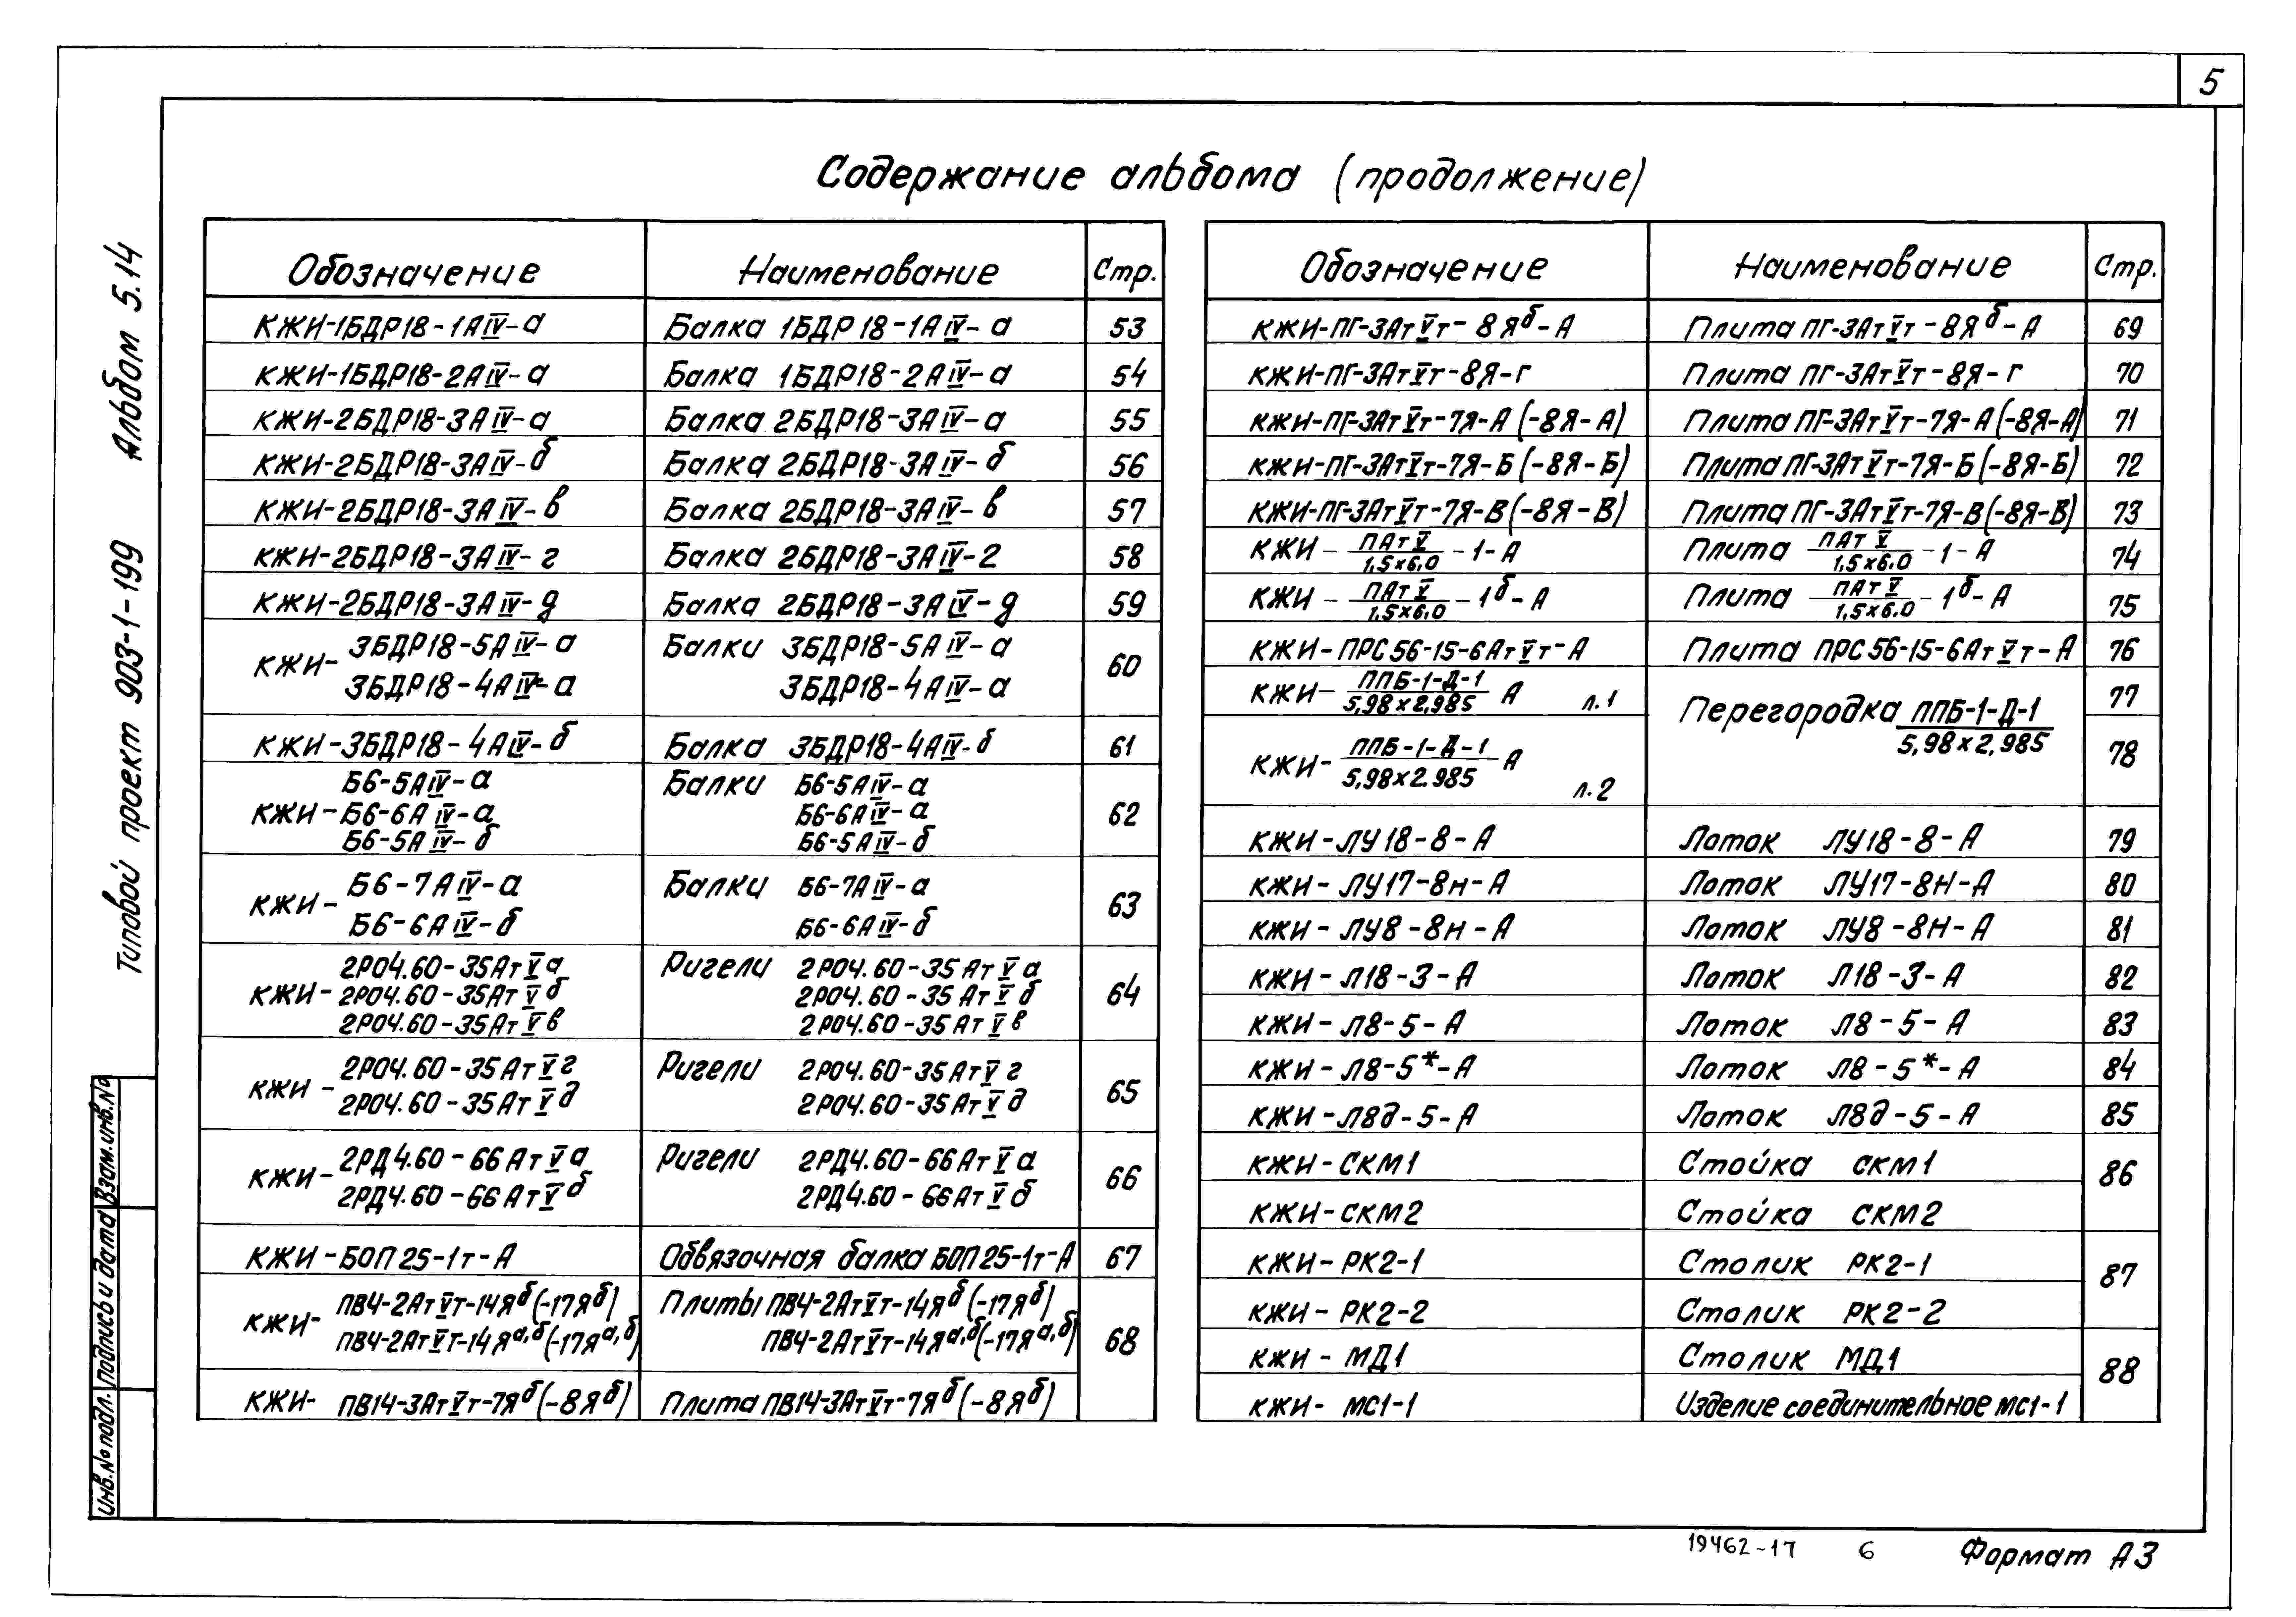 5
Содержание альбома (продолжение)
Типовой проект 903-1-199 Альбом 5.14
Обозначение Наименование Стр.
КЖИ-1БДР18-1АIV-а Балка 1БДР18-1АIV-а 53
КЖИ-1БДР18-2АIV-а Балка 1БДР18-2АIV-а 54
КЖИ-2БДР18-3АIV-а Балка 2БДР18-3АIV-а 55
КЖИ-2БДР18-3АIV-б Балка 2БДР18-3АIV-б 56
КЖИ-2БДР18-3АIV-в Балка 2БДР18-3АIV-в 57
КЖИ-2БДР18-3АIV-г Балка 2БДР18-3АIV-г 58
КЖИ-2БДР18-3АIV-д Балка 2БДР18-3АIV-д 59
КЖИ- 3БДР18-5АIV-а Балки 3БДР18-5АIV-а 60
3БДР18-4АIV-а 3БДР18-4АIV-а
КЖИ-3БДР18-4АIV-б Балка 3БДР18-4АIV-б 61
Б6-5АIV-а Балки Б6-5АIV-а
КЖИ-Б6-6АIV-а Б6-6АIV-а 62
Б6-5АIV-б Б6-5АIV-б
КЖИ- Б6-7АIV-а Балки Б6-7АIV-а 63
Б6-6АIV-б Б6-6АIV-б
2РО4.60-35АтVа Ригели 2РО4.60-35АтVа
КЖИ-2РО4.60-35АтVб 2РО4.60-35АтVб 64
2РО4.60-35АтVв 2РО4.60-35АтVв
КЖИ- 2РО4.60-35АтVг Ригели 2РО4.60-35АтVг 65
2РО4.60-35АтVд 2РО4.60-35АтVд
КЖИ- 2РД4.60-66АтVа Ригели 2РД4.60-66АтVа 66
2РД4.60-66АтVб 2РД4.60-66АтVб
КЖИ-БОП25-1т-А Обвязочная балка БОП25-1т-А 67
КЖИ- ПВ4-2АтVт-14Яб(-17Яб) Плиты ПВ4-2АтVт-14Яб(-17Яб) 68
ПВ4-2АтVт-14Яа,б(-17Яа,б) ПВ4-2АтVт-14Яа,б(-17Яа,б)
КЖИ- ПВ14-3АтVт-7Яб(-8Яб) Плита ПВ14-3АтVт-7Яб(-8Яб)
Обозначение Наименование Стр.
КЖИ-ПГ-3АтVт-8Яб-А Плита ПГ-3АтVт-8Яб-А 69
КЖИ-ПГ-3АтVт-8Я-г Плита ПГ-3АтVт-8Я-г 70
КЖИ-ПГ-3АтVт-7Я-А(-8Я-А) Плита ПГ-3АтVт-7Я-А(-8Я-А) 71
КЖИ-ПГ-3АтVт-7Я-Б(-8Я-Б) Плита ПГ-3АтVт-7Я-Б(-8Я-Б) 72
КЖИ-ПГ-3АтVт-7Я-В(-8Я-В) Плита ПГ-3АтVт-7Я-В(-8Я-В) 73
КЖИ- ПАтV/1,5х6,0 -1-А Плита ПАтV/1,5х6,0 -1-А 74
КЖИ- ПАтV/1,5х6,0 -1б-А Плита ПАтV/1,5х6,0 -1б-А 75
КЖИ-ПРС56-15-6АтVт-А Плита ПРС56-15-6АтVт-А 76
КЖИ- ППБ-1-Д-1/5,98х2,985 А л.1 Перегородка ППБ-1-Д-1/5,98х2,985 77
КЖИ- ППБ-1-Д-1/5,98х2.985 А л.2 78
КЖИ-ЛУ18-8-А Лоток ЛУ18-8-А 79
КЖИ-ЛУ17-8н-А Лоток ЛУ17-8Н-А 80
КЖИ-ЛУ8-8н-А Лоток ЛУ8-8Н-А 81
КЖИ-Л18-3-А Лоток Л18-3-А 82
КЖИ-Л8-5-А Лоток Л8-5-А 83
КЖИ-Л8-5*-А Лоток Л8-5*-А 84
КЖИ-Л8д-5-А Лоток Л8д-5-А 85
КЖИ-СКМ1 Стойка СКМ1 86
КЖИ-СКМ2 Стойка СКМ2
КЖИ-РК2-1 Столик РК2-1 87
КЖИ-РК2-2 Столик РК2-2
КЖИ-МД1 Столик МД1 88
КЖИ- МС1-1 Изделие соединительное МС1-1
Инв.№подл. Подпись и дата Взам.инв.№
19462-17 6 Формат А3